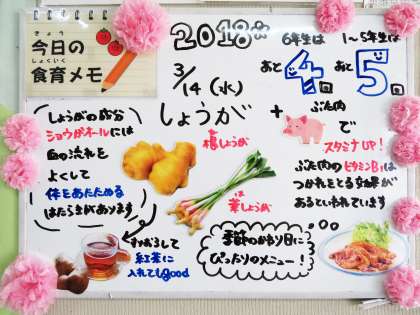 きょう
今日の
しょくいく
食育メモ
2018年
3/14(水)
6年生は
あと4回
1〜5年生は
あと5回
しょうが
+
ぶた肉
で
スタミナUP!
ぶた肉のビタミンB1は
つかれをとる効果が
あるといわれています
しょうがの成分
ショウガオールには
血の流れを
よくして
体をあたためる
はたらきがあります
根しょうが
は
葉しょうが
すりおろして
紅茶に
入れてもgood
季節のかわり目に
ぴったりのメニュー!